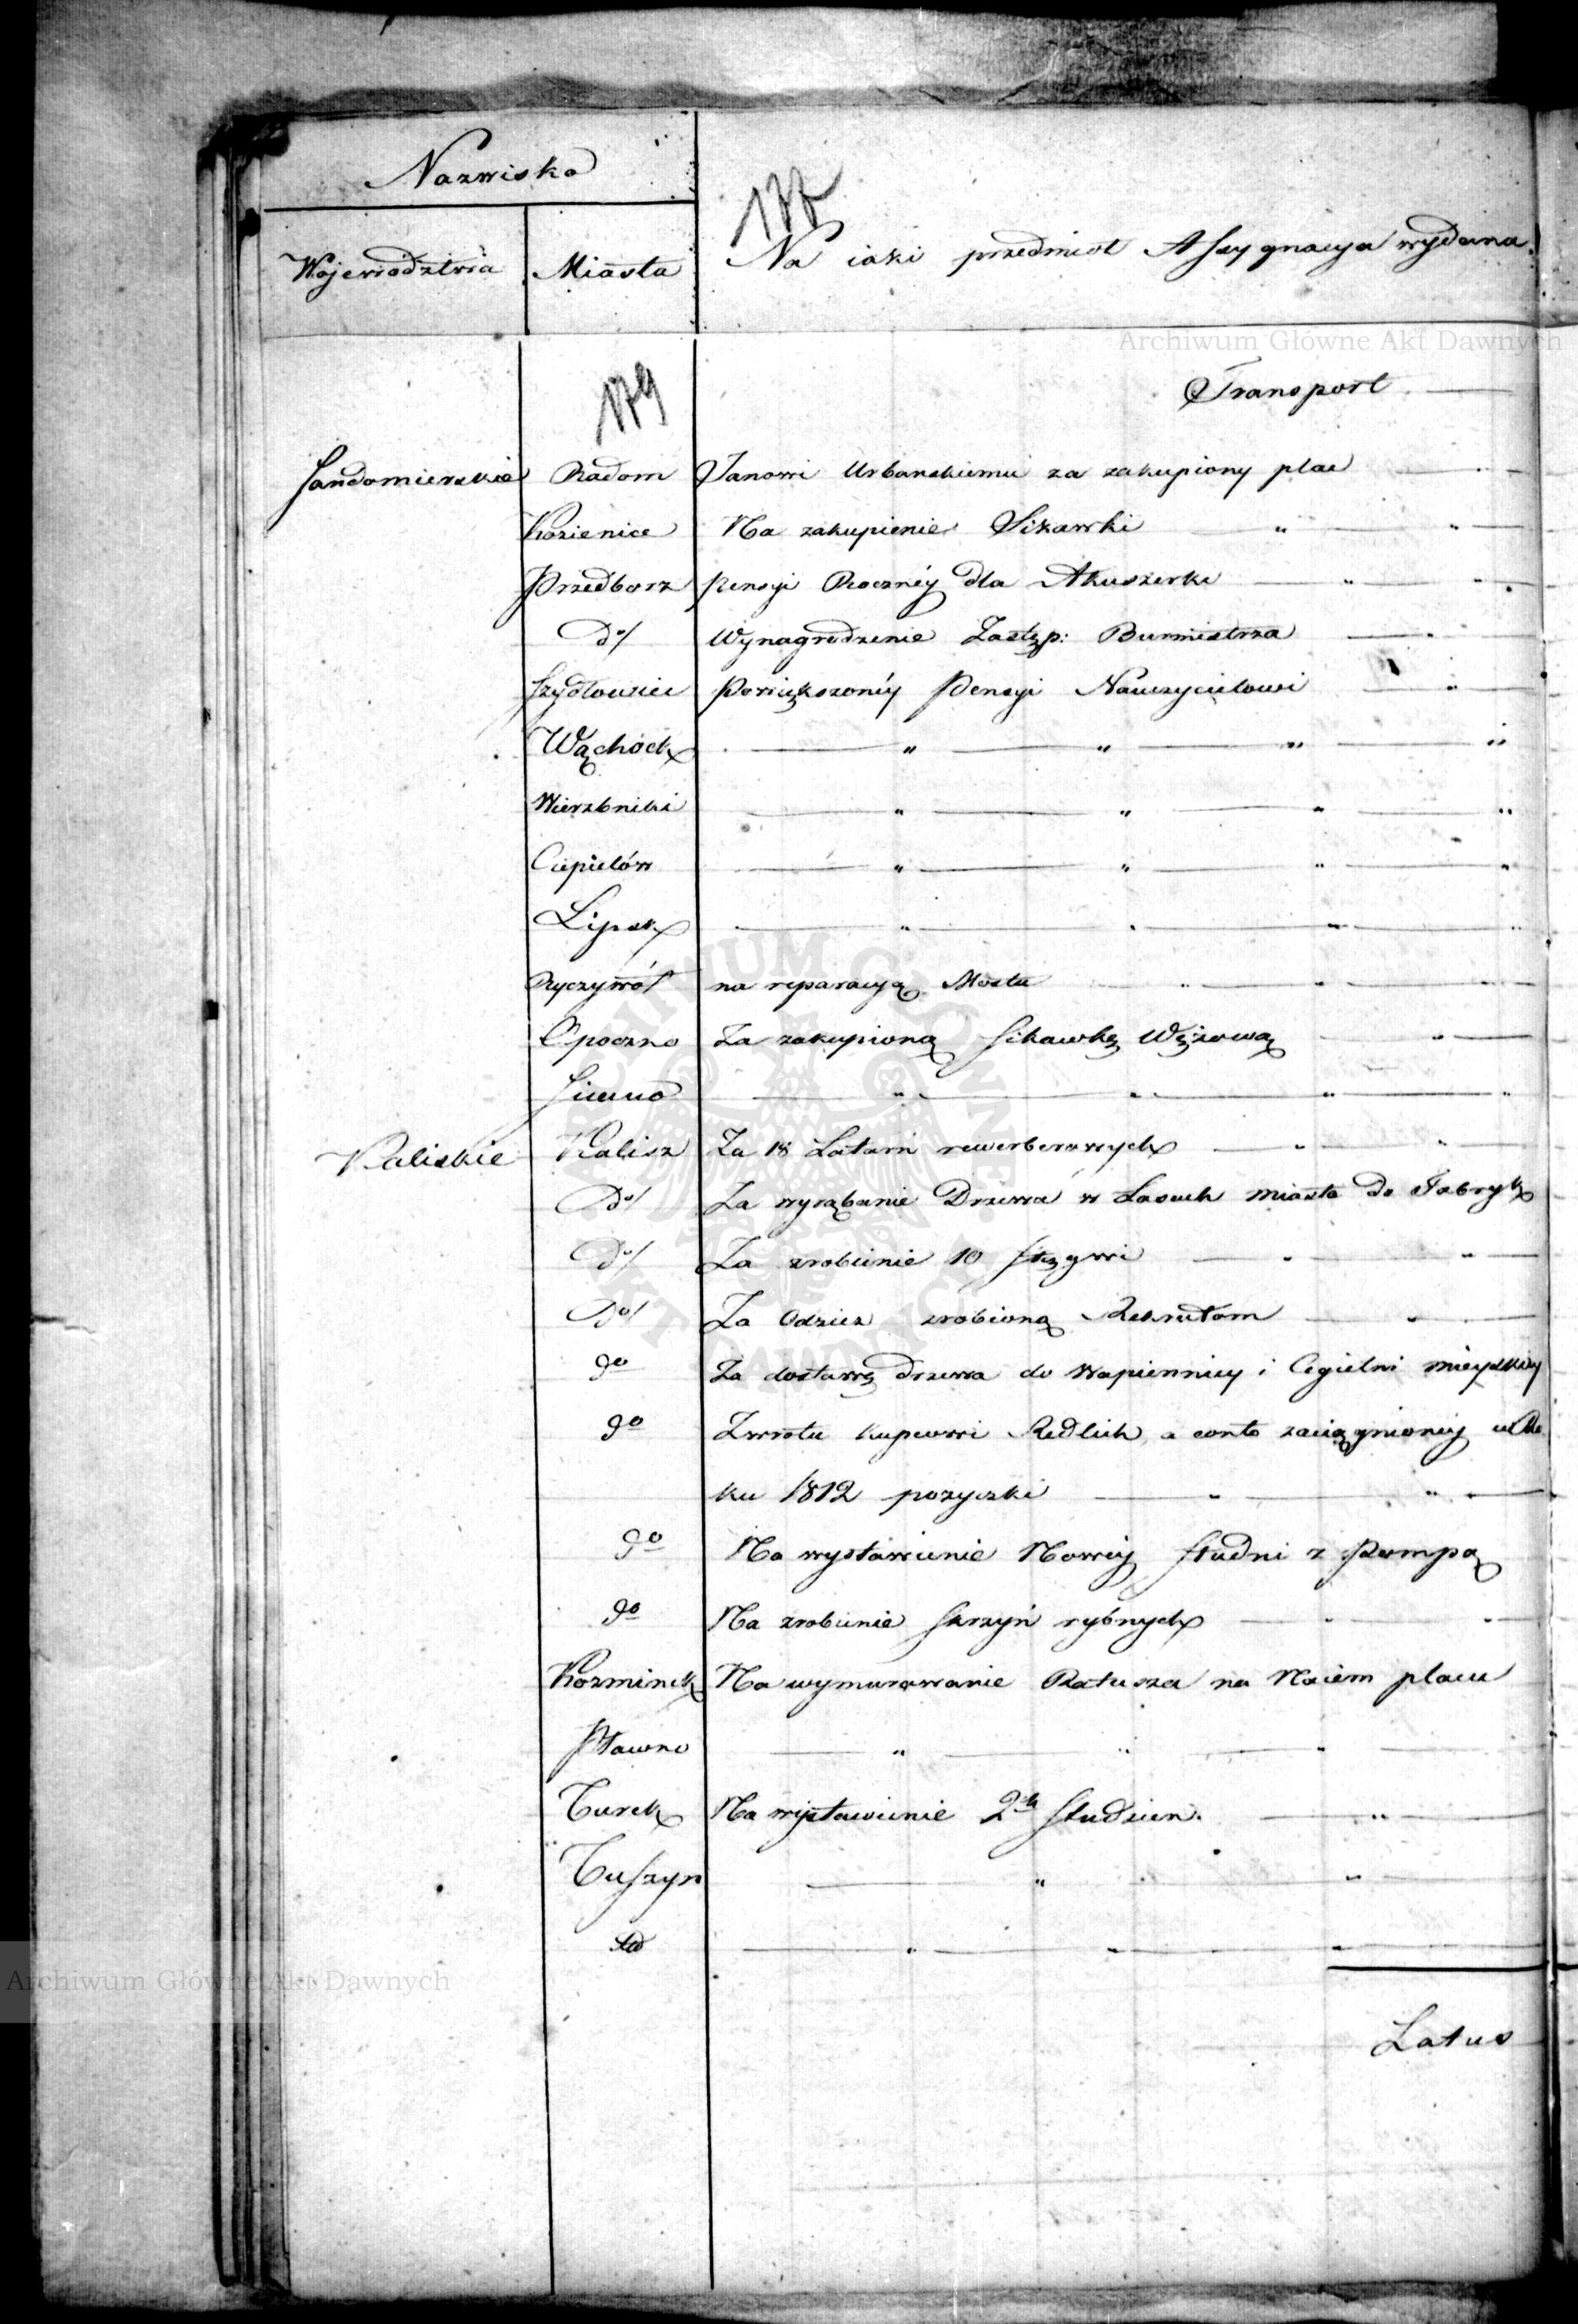 Nazwiska
177
Województwa Miasta Na iaki przedmiot Assygnacya wydana.
Archiwum Główne Akt Dawnych
179 Transport
Sandomierskie Radom Janowi Urbanskiemu za zakupiony plac
Kozienice Na zakupienie Sikawki " "
Przedborz Pensyi Rocznéy dla Akuszerki " "
do/ Wynagrodzenie Zastęp: Burmistrza
Szydłowiec Powiększonéy Pensyi Nauczycielowi "
Wąchock " " " "
Wierzbniki " " " "
Ciepielów " " " "
Lipsk " " " "
Ryczywół na reparacyą Mostu " " "
Opoczno Za zakupioną Sikawkę Wężową "
Sienno " " " "
Kaliskie Kalisz Za 18 Latarń rewerberowych " "
Do/ Za wyrąbanie Drzewa w Lasach miasta do Fabryk
Do/ Za zrobienie 10 " "
Do/ Za Odzież zrobioną Rekrutom "
do Za dostawę drzewa do Wapiennicy i Cegielni mieyskiey
do Zwrotu kupcowi Redlich a conto zaciągnioney w Ro
ku 1812 pozyczki " "
do Na wystawienie Nowéy studni z Pompą
do Na zrobienie skrzyń rybnych " "
Kozminek Na wymurowanie Ratusza na Placu
Pławno " " "
Turek Na wystawienie 2ch studzien. "
Tuszyn " "
do " " "
Archiwum Główne Akt Dawnych
Latus